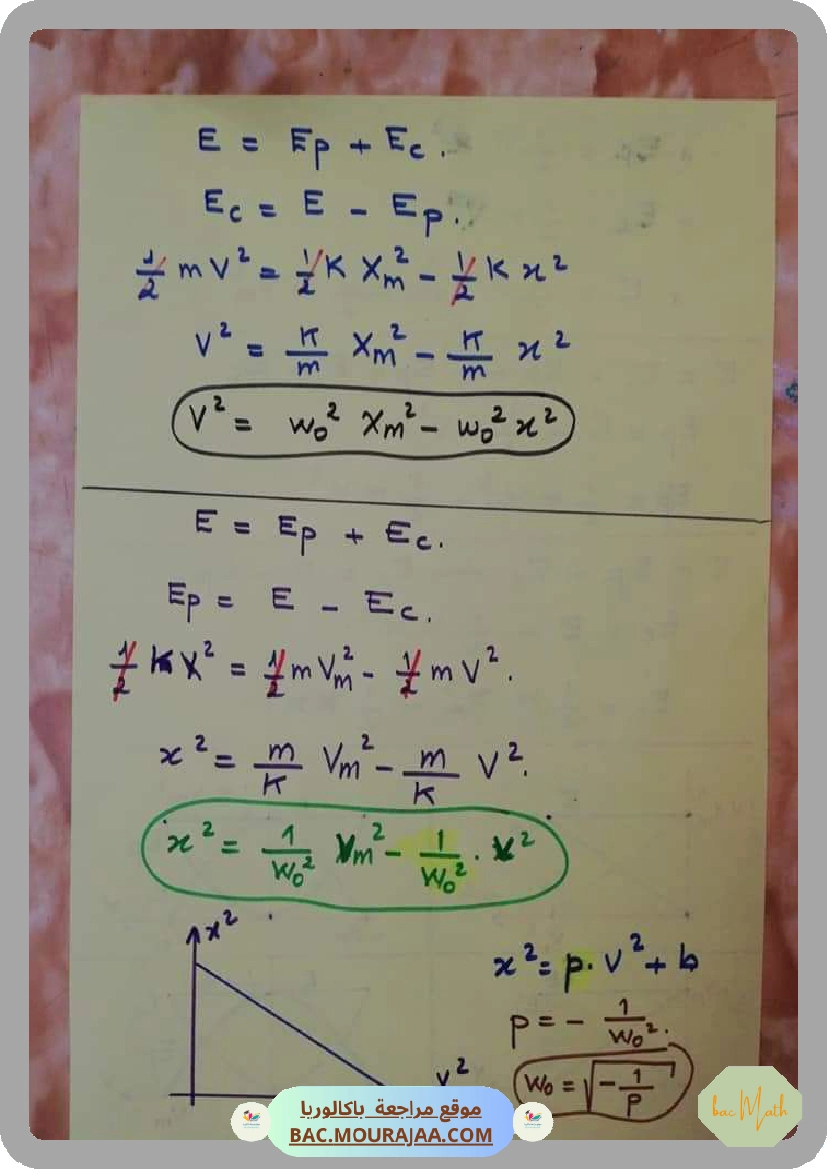 E = Ep + Ec.
Ec = E - Ep.
1/2 m V² = 1/2 K Xm² - 1/2 K x²
V² = K/m Xm² - K/m x²
V² = w₀² Xm² - w₀² x²
E = Ep + Ec.
Ep = E - Ec.
1/2 K X² = 1/2 m Vm² - 1/2 m V².
x² = m/K Vm² - m/K V².
x² = 1/w₀² Vm² - 1/w₀² . V²
x²
x² = p. V² + b
p = - 1/w₀².
V²
w₀ = √(-1/p)
موقع مراجعة باكالوريا
BAC.MOURAJAA.COM
bac Math